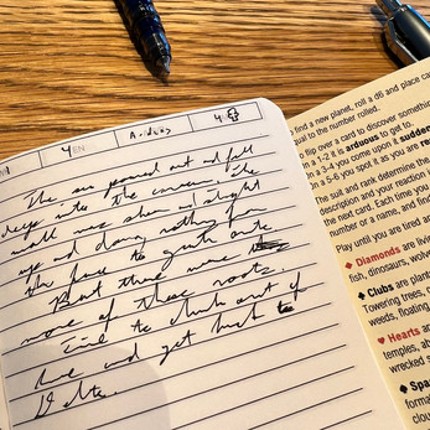 Arduous
4♣
The sun poured out and fell
deep into the cavern. The
wall was sheer and straight
up and down, nothing from
the face to grab onto.
But there were
more of these roots.
Time to climb out of
here and get back to
find a new planet, roll a d6 and place
qual to the number rolled.
flip over a card to discover something
n a 1-2 it is arduous to get to.
n a 3-4 you come upon it
n a 5-6 you spot it as you are
The suit and rank determine the
description and your reaction
the next card. Each time you
number or a name, and find
Play until you are tired a
♦ Diamonds are livin
fish, dinosaurs, wolv
♣ Clubs are plan
Towering trees,
weeds, floating
♥ Hearts ar
temples, ab
wrecked s
♠
forma
clou